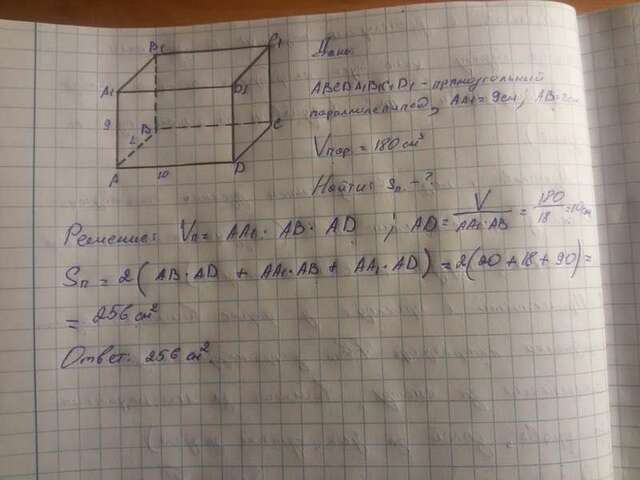 B1
C1
A1
D1
9
B
C
2
A
10
D
Дано:
ABCDA1B1C1D1 - прямоугольный
параллелепипед, AA1 = 9см; AB=2см
Vпар = 180 см³
Найти: Sп - ?
Решение: Vп = AA1 · AB · AD ; AD = V/AA1·AB = 180/18 = 10см
Sп = 2(AB·AD + AA1·AB + AA1·AD) = 2(20+18+90) =
= 256 см²
Ответ: 256 см².